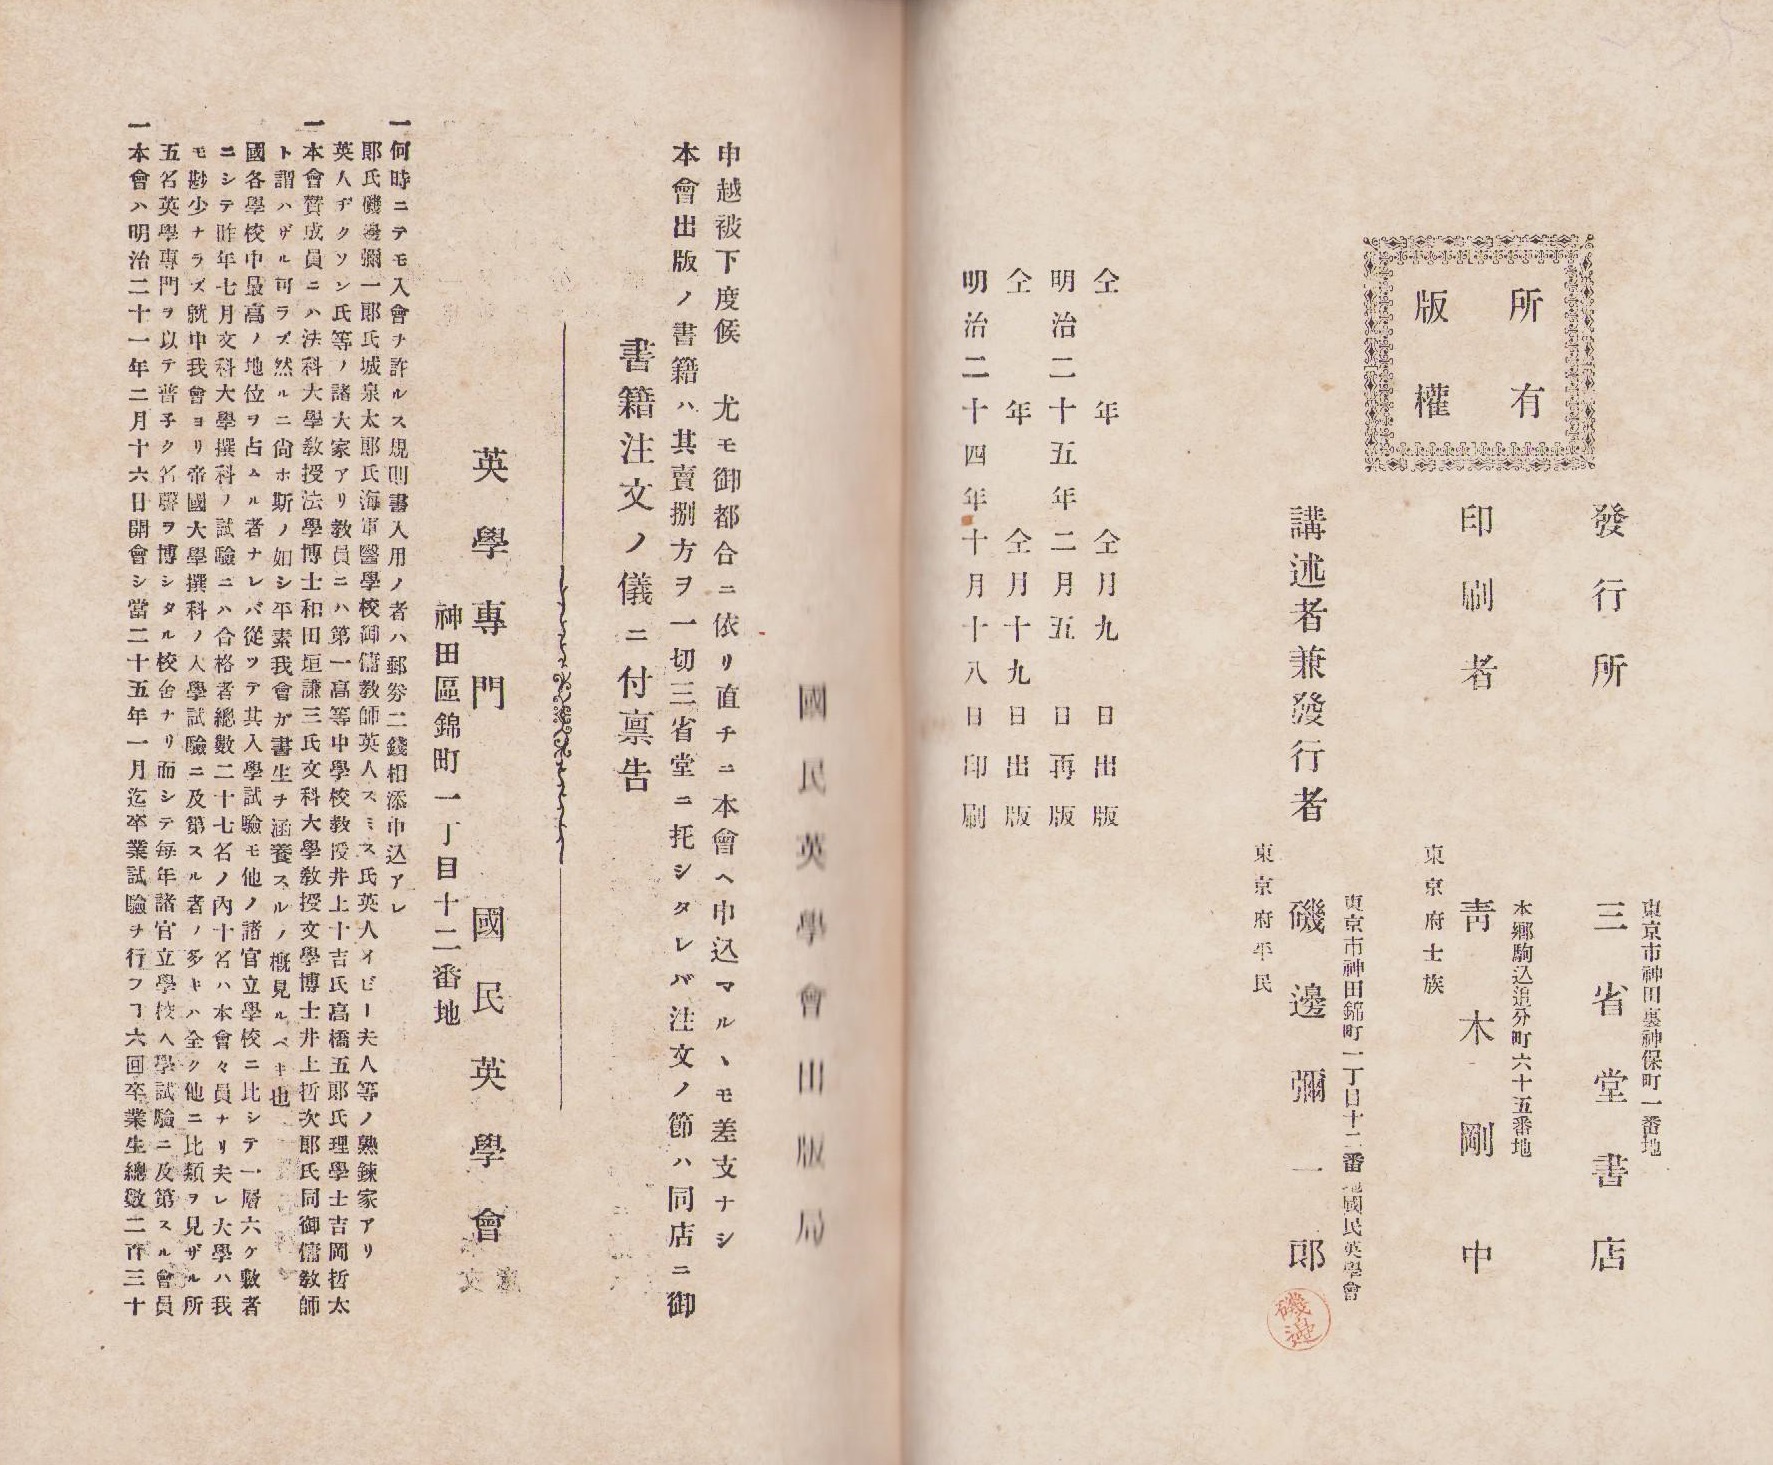 一本會ハ明治二十一年二月十六日開會シ當二十五年一月迄卒業試驗ヲ行フヿ六回卒業生總數二百三十
五名英學專門ヲ以テ普子ク名聲ヲ博シタル校舍ナリ而シテ每年諸官立學校入學試驗ニ及第スル會員
モ尠少ナラズ就中我會ヨリ帝國大學撰科ノ入學試驗ニ及第スル者ノ多キハ全ク他ニ比類ヲ見ザル所
ニシテ昨年七月文科大學撰科ノ試驗ニハ合格者總數二十七名ノ內十名ハ本會々員ナリ夫レ大學ハ我
國各學校中最高ノ地位ヲ占ムル者ナレバ從ツテ其入學試驗モ他ノ諸官立學校ニ比シテ一層六ケ敷者
ト謂ハザル可ラズ然ルニ尙ホ斯ノ如シ平素我會ガ書生ヲ涵養スルノ概見ルベキ也
一本會賛成員ニハ法科大學敎授法學博士和田垣謙三氏文科大學敎授文學博士井上哲次郎氏同御傭敎師
英人ヂクソン氏等ノ諸大家アリ敎員ニハ第一高等中學校敎授井上十吉氏高橋五郎氏理學士吉岡哲太
郎氏磯邊彌一郎氏城泉太郎氏海軍醫學校御傭敎師英人スミス氏英人イビー夫人等ノ熟鍊家アリ
一何時ニテモ入會ヲ許ルス規則書入用ノ者ハ郵券二錢相添申込アレ
神田區錦町一丁目十二番地
英學專門 國民英學會
書籍注文ノ儀ニ付禀告
本會出版ノ書籍ハ其賣捌方ヲ一切三省堂ニ托シタレバ注文ノ節ハ同店ニ御
申越被下度候 尤モ御都合ニ依リ直チニ本會ヘ申込マルヽモ差支ナシ
國民英學會出版局
明治二十四年十月十八日印刷
仝年仝月十九日出版
明治二十五年二月五日再版
仝年仝月九日出版
東京府平民
講述者兼發行者 磯邊彌一郎
磯邊
東京市神田錦町一丁目十二番地國民英學會
版權所有
東京府士族
印刷者 靑木剛中
本鄉駒込追分町六十五番地
發行所 三省堂書店
東京市神田裏神保町一番地